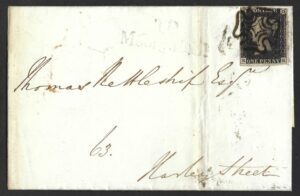 ONE PENNY
Thomas Kettleship Esqr
63.
Harley Street